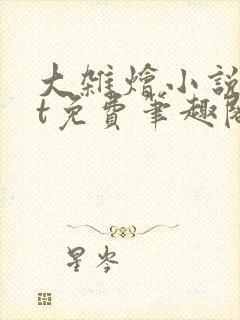 大雜燴小說
t免費筆趣閣
星岑